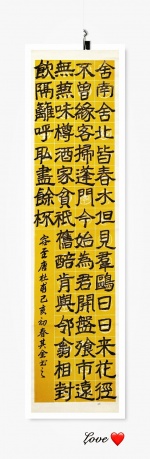 舍南舍北皆春水但見羣鷗日日來花徑
不曾緣客掃蓬門今始為君開盤飧市遠
無兼味樽酒家貧祇舊醅肯與鄰翁相對
飲隔籬呼取盡餘杯
客至唐杜甫己亥初春其金書之
Love